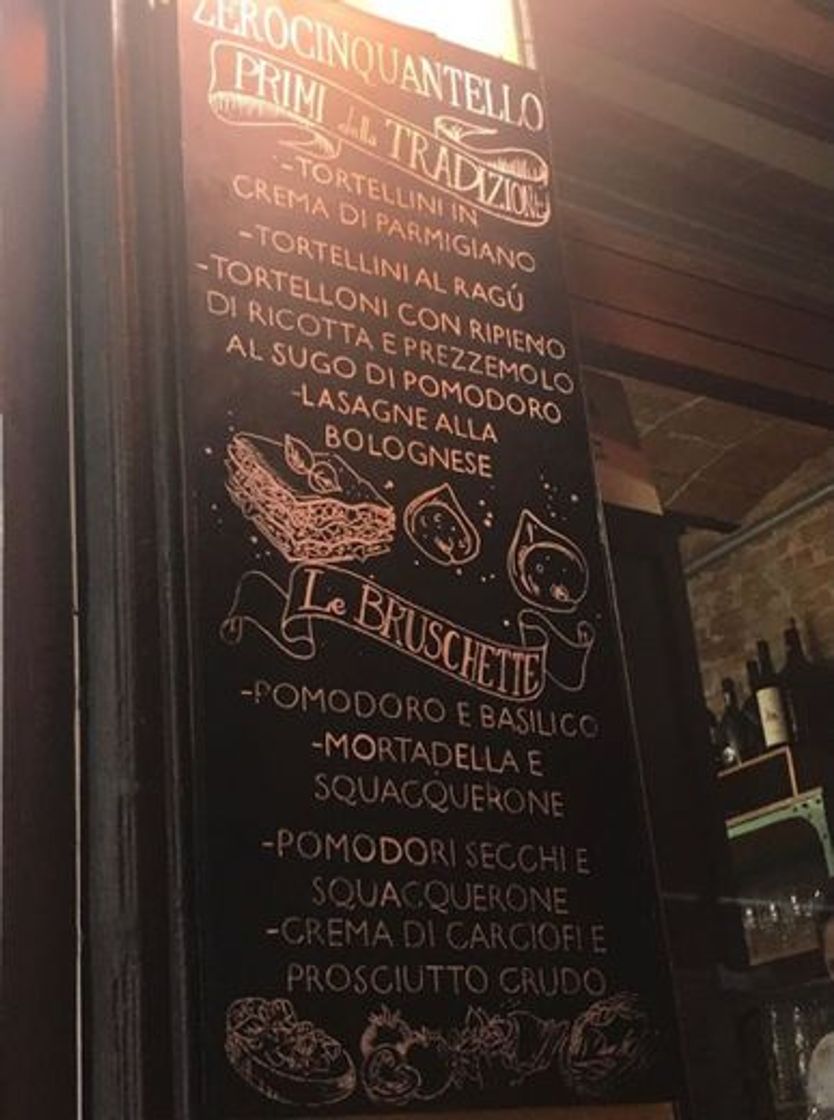 ZEROCINQUANTELLO
PRIMI della TRADIZIONE
-TORTELLINI IN
CREMA DI PARMIGIANO
-TORTELLINI AL RAGÚ
-TORTELLONI CON RIPIENO
DI RICOTTA E PREZZEMOLO
AL SUGO DI POMODORO
-LASAGNE ALLA
BOLOGNESE
Le BRUSCHETTE
-POMODORO E BASILICO
-MORTADELLA E
SQUACQUERONE
-POMODORI SECCHI E
SQUACQUERONE
-CREMA DI CARCIOFI E
PROSCIUTTO CRUDO